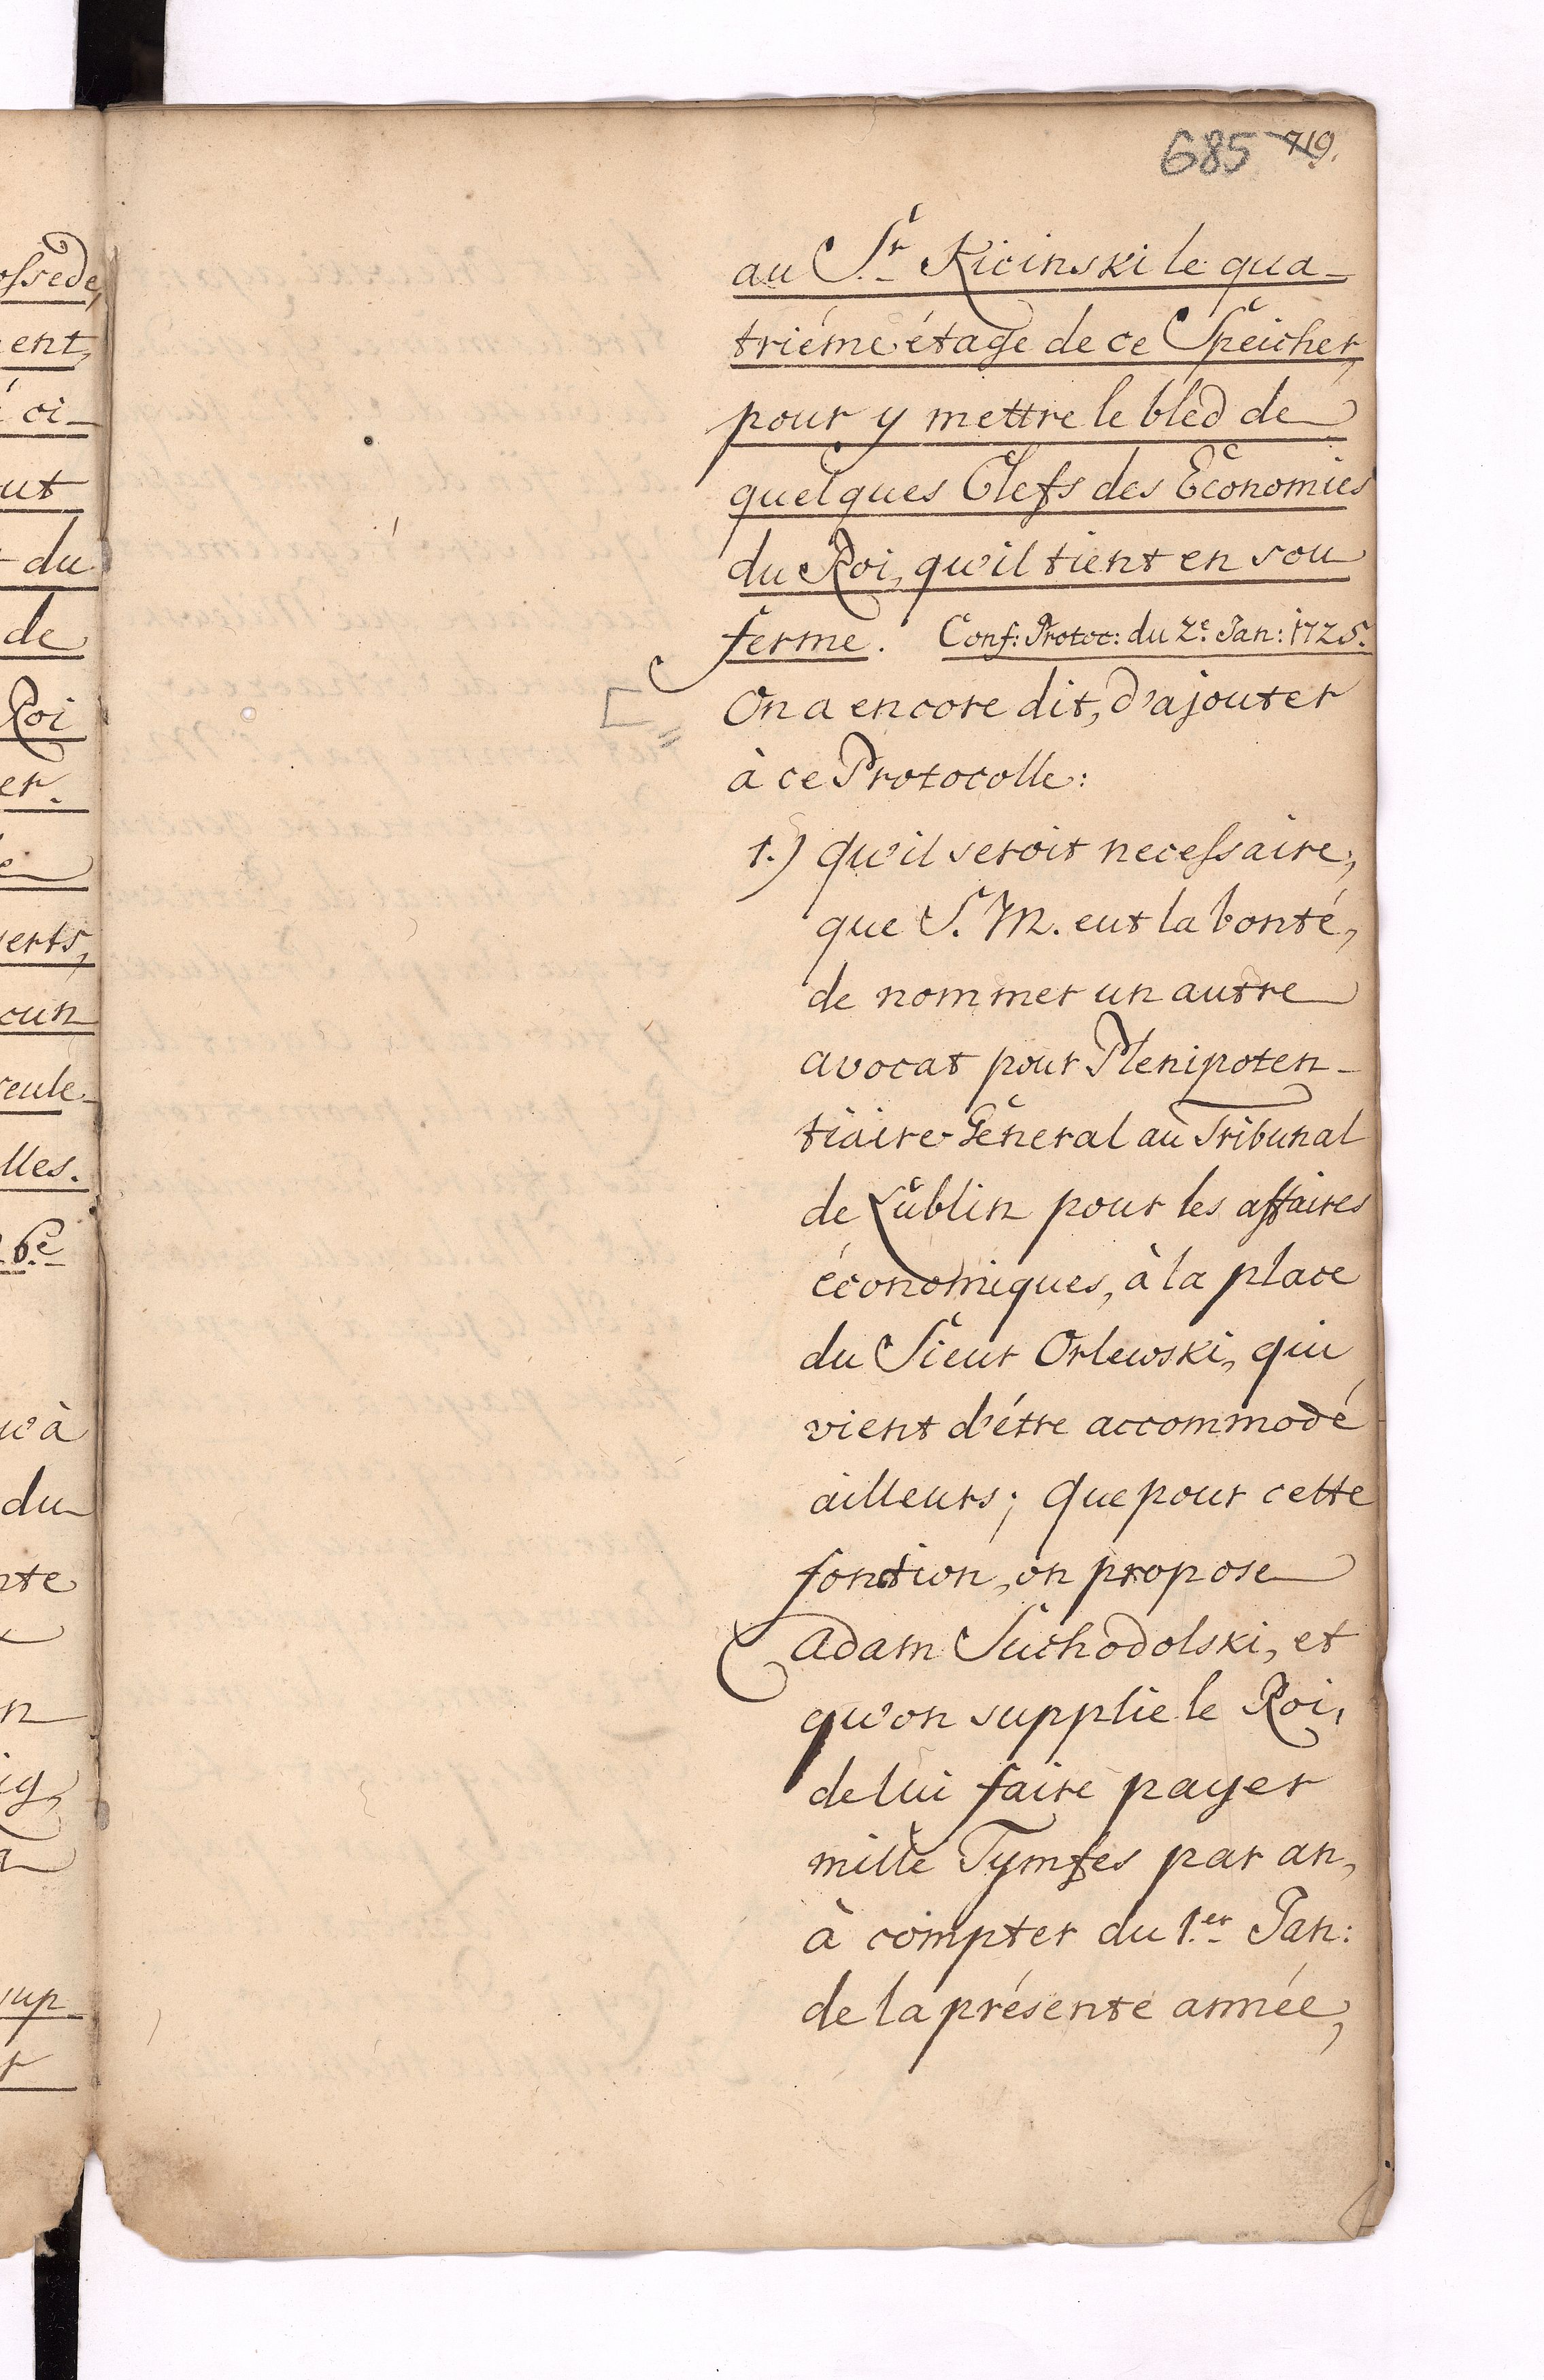 685 719.
au Sr. Kicinski le qua-
triéme étage de ce Speicher,
pour y mettre le bled de
quelques Clefs des Economies
du Roi, qu'il tient en sou
ferme. Conf: Protoc: du 2e. Jan: 1725.
On a encore dit, d'ajouter
à ce Protocolle:
1.) qu'il seroit necessaire,
que S. M. eut la bonté,
de nommer un autre
avocat pour Plenipoten-
tiaire General au Tribunal
de Lublin pour les affaires
économiques, à la place
du Sieur Orlewski, qui
vient d'étre accommodé
ailleurs; que pour cette
fonction, on propose
Adam Suchodolski, et
qu'on supplie le Roi,
de lui faire payer
mille Tymfes par an,
à compter du 1.er Jan:
de la présente année,
ossede,
ent,
ci-
ut
du
de
Roi
er.
erts,
cun
seule-
lles.
6e
du
nte
n
sup-